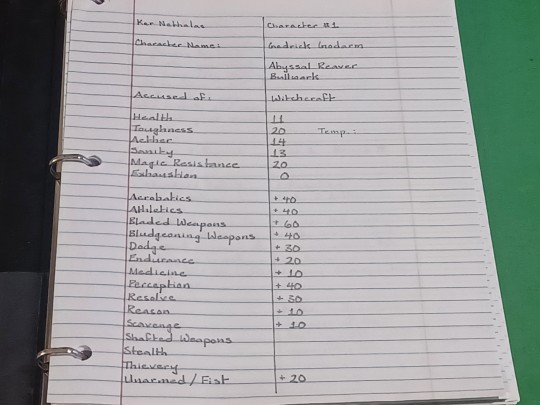 Ker Nethalas Character #1
Character Name: Gadrick Godarm
Abyssal Reaver
Bullwark
Accused of: Witchcraft
Health 11
Toughness 20 Temp.:
Aether 14
Sanity 13
Magic Resistance 20
Exhaustion 0
Acrobatics + 40
Athletics + 40
Bladed Weapons + 60
Bludgeoning Weapons + 40
Dodge + 30
Endurance + 20
Medicine + 10
Perception + 40
Resolve + 50
Reason + 10
Scavenge + 10
Shafted Weapons
Stealth
Thievery
Unarmed / Fist + 20